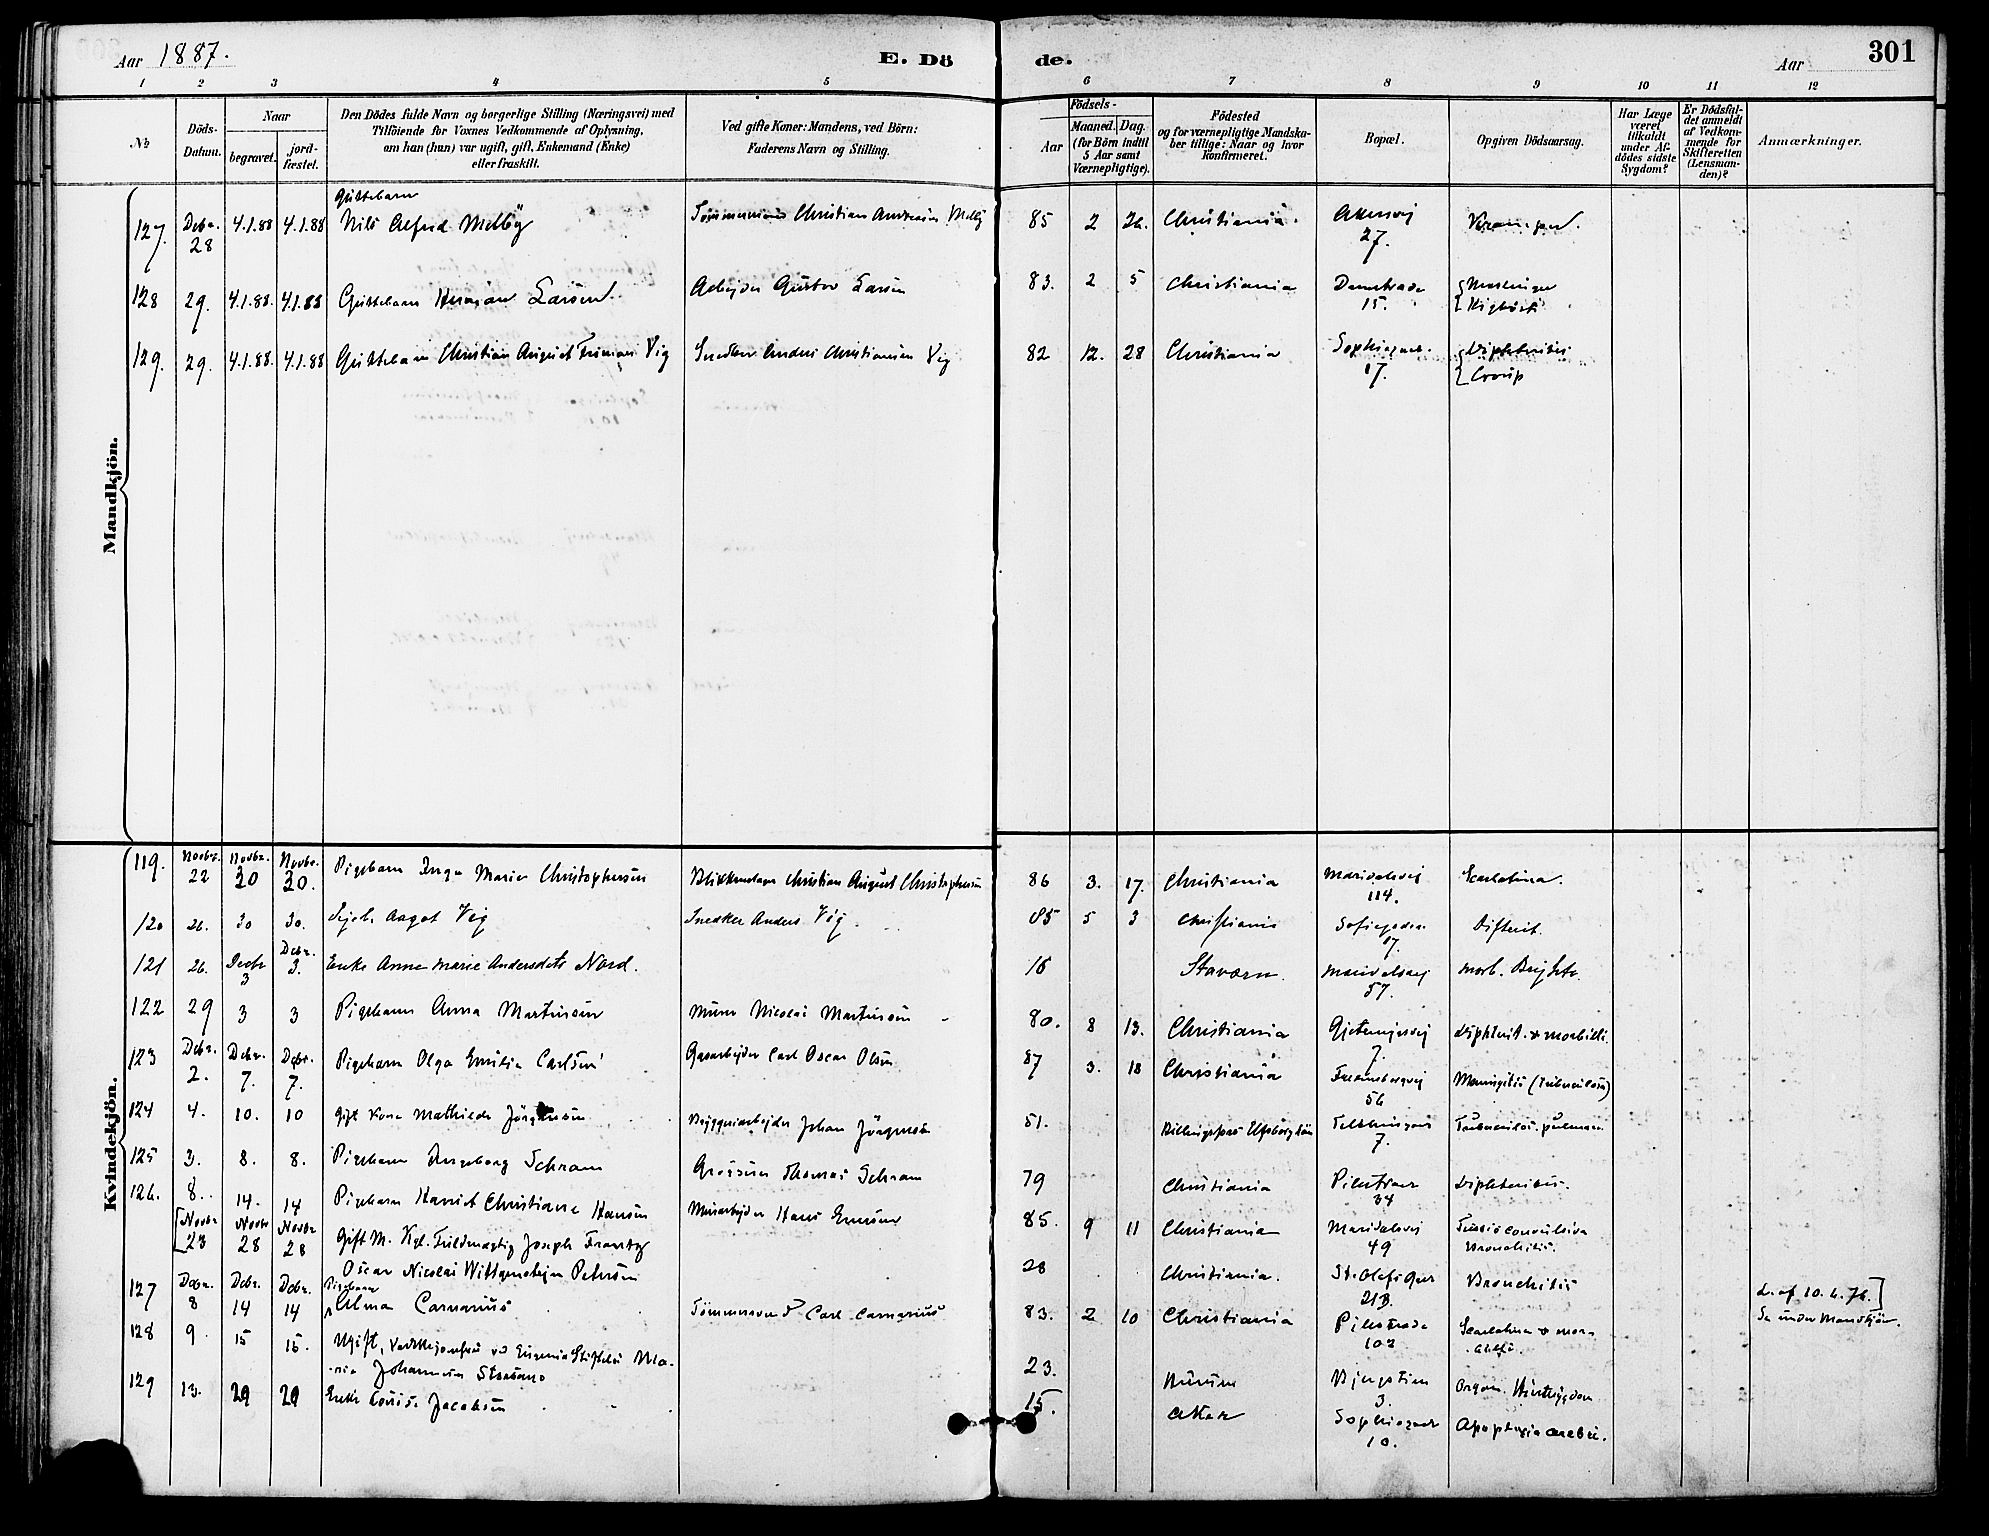 Aar 1887.
E. Dö
de.
Aar
301
1 2 3 4 5 6 7 8 9 10 11 12
No
Döds-Datum.
Naar
begravet.
jord-fæstet.
Den Dödes fulde Navn og borgerlige Stilling (Næringsvei) med
Tilföiende for Voxnes Vedkommende af Oplysning,
om han (hun) var ugift, gift, Enkemand (Enke)
eller fraskilt.
Ved gifte Koner: Mandens, ved Börn:
Faderens Navn og Stilling.
Födsels-
Aar
Maaned. Dag.
(for Börn indtil
5 Aar samt
Værnepligtige).
Födested
og for værnepligtige Mandska-
ber tillige: Naar og hvor
konfirmeret.
Bopæl.
Opgiven Dödsaarsag.
Har Læge
været
tilkaldt
under Af-
dödes sidste
Sygdom?
Er Dödsfal-
det anmeldt
af Vedkom-
mende for
Skifteretten
(Lensman-
den)?
Anmærkninger.
Mandkjön.
Guttebarn
127. Debr. 28 4.1.88 4.1.88 Nils Alfred Melby Christian Melby 85 2 26. Christiania. Akersvej 27.
128 29. 4.1.88. 4.1.88 Guttebarn Herman Larsen. Arbejder Gustav Larsen 83. 2 5 Christiania 15.
129. 29. 4.1.88. 4.1.88 Guttebarn Christian August Vig Snedker Anders Christiansen Vig 82 12. 28 Christiania 17. Diphteritis Croup
Kvindekjön.
119. Novbr. 22 Novbr. 30 Novbr. 30. Pigebarn Inga Marie Christophersen Christian August Christophersen 86 3. 17. Christiania Maridalsvej 114. Scarlatina.
120 26. 30 30. Aagot Vig Snedker Anders Vig. 85 5 3 Christiania 17. Difterit.
121 26. Decbr 3 Debr. 3. Enke Anne Marie Andersdatt. Nord. 16 Stavern. Maridalsvej 57. Morb. Brightii
122 29 3 3 Pigebarn Anna Martinsen Murer Nicolai Martinsen 80. 8 13. Christiania 7. Diphterit. & morbilli.
123 Debr. 2. Debr. 7. Debr. 7. Pigebarn Olga Emilie Carlsen Gasarbejder Carl Oscar Olsen 87 3. 18 Christiania 56 Meningitis (tuberculosa)
124 4. 10. 10 gift Kone Mathilde Jörgensen Bryggeriarbejder Johan Jörgensen 51. 7.
125 3. 8. 8. Pigebarn Ingeborg Schram Grosserer Thomas Schram 79 Christiania Pilestræde 34 Diphteritis.
126. 8. 14. 14 Pigebarn Harriet Christiane Hansen Hans Hansen 85. 9 11 Christiania Maridalsvej 49 Tussis convulsiva Bronchitis.
Novbr 23 Novbr 28 Novbr 28 Gift M. Kgl. Fuldmægtig Joseph Frantz
Oscar Nicolai Wittgenstejn Petersen 28 Christiania. St. Olafs Gade 21B. Bronchitis d. af 10. 6. 76. Se under Mandkjön.
127 Debr. 8 Debr. 14 Debr. 14 Pigebarn Alma Carnarius Carl Carnarius 83. 2 10 Christiania Pilestræde 102 Scarlatina & morbilli.
128 9. 15 15. Ugift, ved Eugenia Stiftelse Ma-
-rie Johannesen 23. 3.
129 13. 29 29 Enke Lovise Jacobsen 15. Aker 10. Apoplexia cerebri.